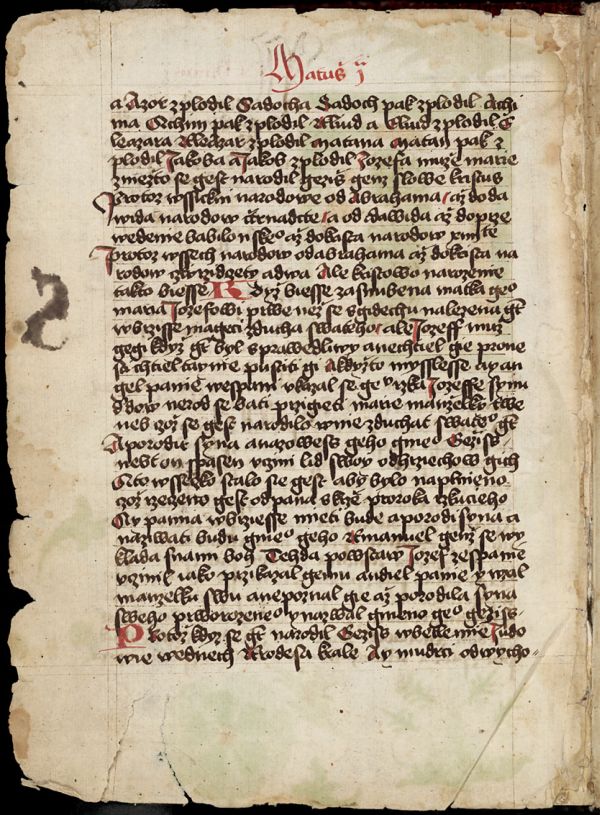 Matuš ij
a Azor zplodil Sadocha Sadoch pak zplodil Achi
ma Achim pak zplodil Eliud a Eliud zplodil E
leazara Eleazar zplodil Matana Matan pak z
plodil Jakoba a Jakob zplodil Jozefa muže marie
z niežto se gest narodil gežiš genž slowe kristus
Protož wssickni narodowe od Abrahama až do da
wida narodow čtrnadcte a od dawida až do prze
wedenie babilonskeo až do krista narodow xiiii te
Protož wssech narodow od abrahama až do krista na
rodow cztyridzety a dwa Ale kristowo narozenie
takto biesse Když biesse zasnubena matka geo
maria Jozefowi prwe než se sgidechu nalezena gt
w brzisse magieci z ducha swateho ale Jozeff muž
gegi když gt byl sprawedliwy a nechtiel gie prone
sti chtiel taynie pustiti gi A když to mysslesse ay an
gel panie we spani ukazal se geu rzka Jozeffe synu
dawidow nerod se bati przigieti marie manželky twe
neb což se gest narodilo w nie z ducha t swateo gt
A porodit syna a nazowess geho gmeo Gežiss
nebt on spasen uczini lid swoy od hrziechow gich
A to wssecko stalo se gest aby bylo naplnieno
což rzečeno gest od pana skrze proroka rzkucieho
Ay panna w brziesse mieti bude a porodi syna a
nazywati budu gmeo geho Emanuel genž se wy
klada s nami boh Tehda powstaw Jozef ze spanie
uczinil iako przikazal gemu andiel panie y wzal
manželku swu a nepoznal gie až porodila syna
sweho prworozeneo y nazwal gmeno geo gežiss
Protož kdyz se gt narodil Gežiss w betlemie Judo
wie we dnech Erodesa krale Ay mudrci od wycho